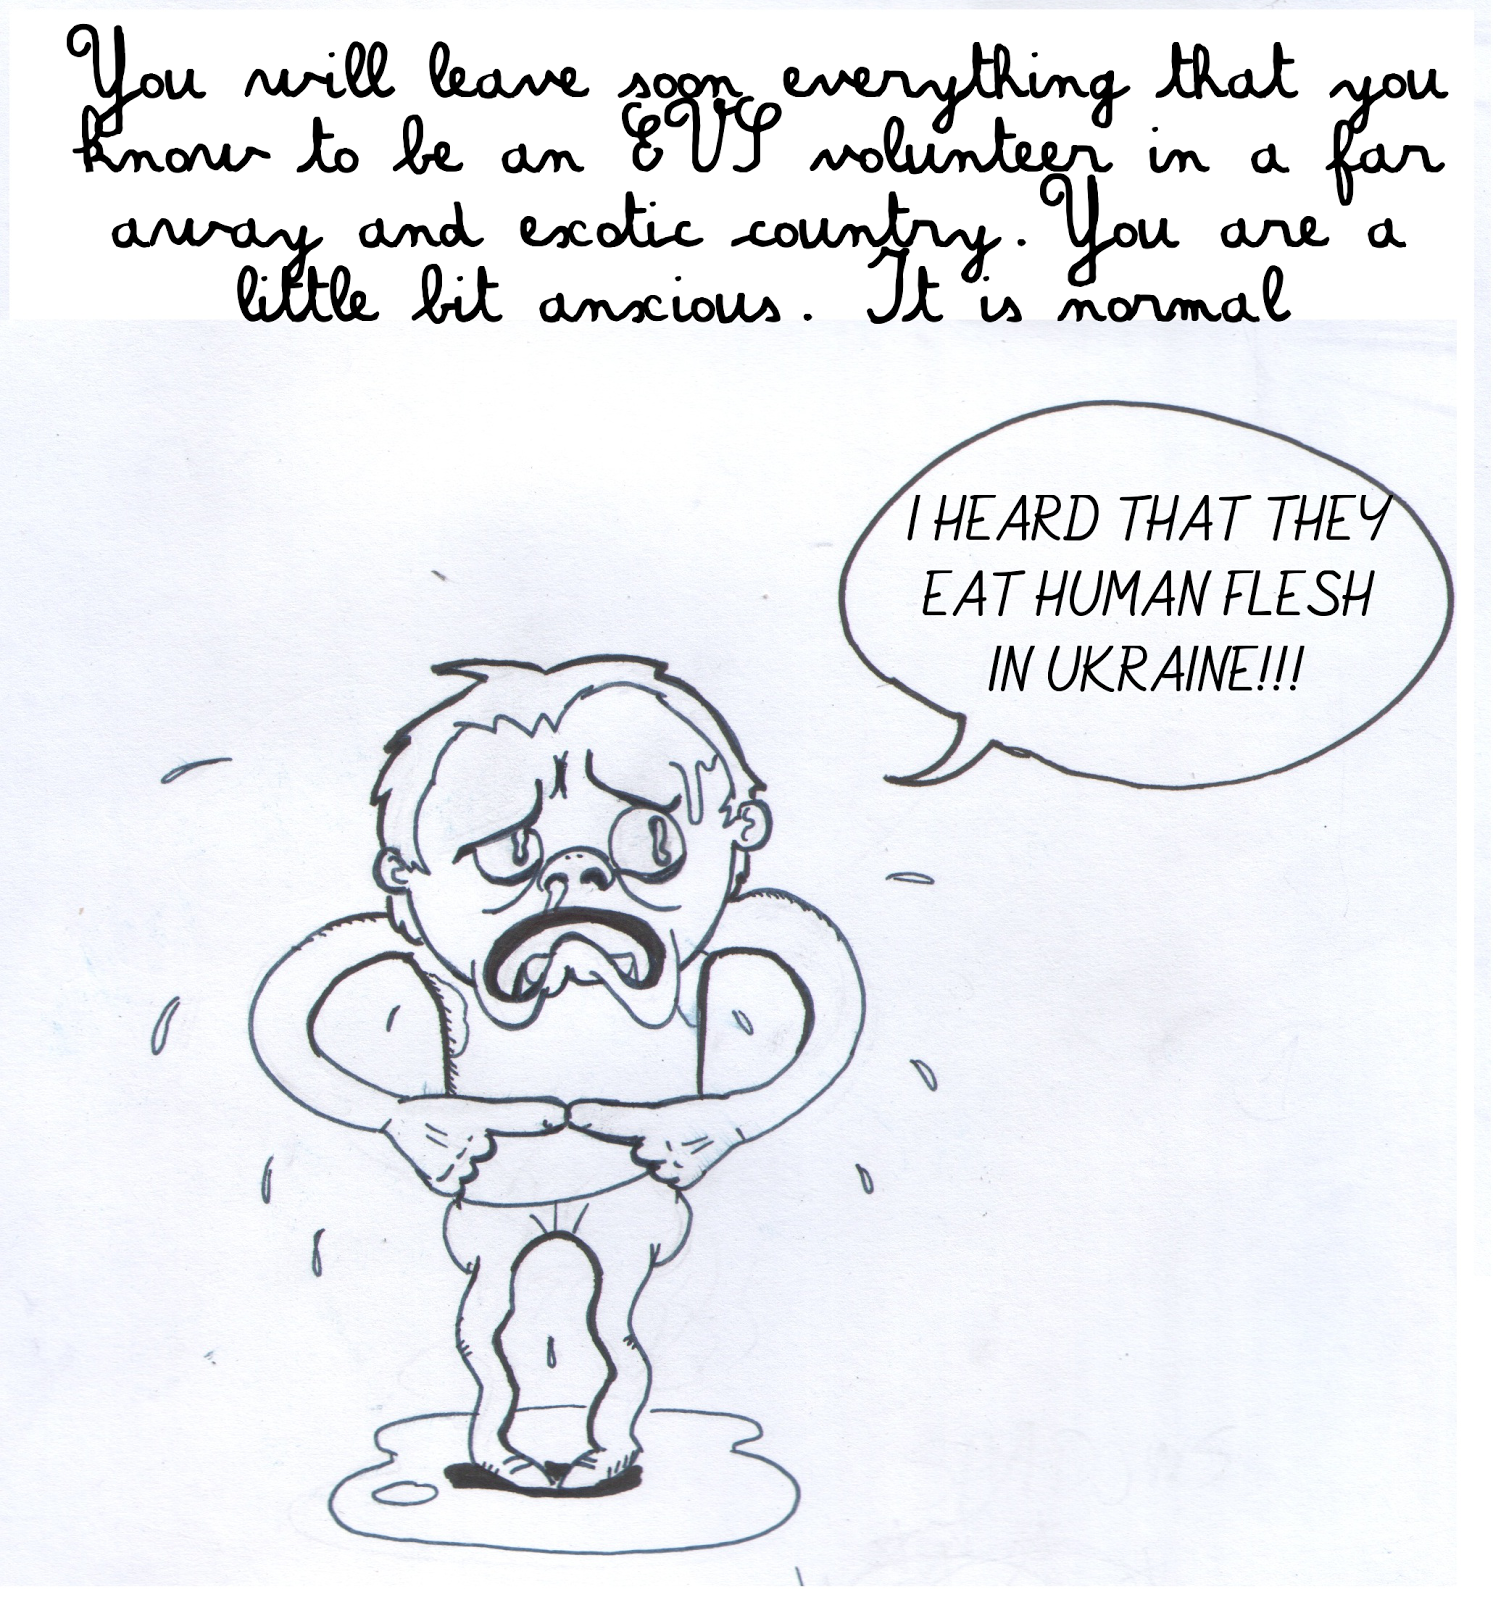 You will leave soon everything that you
know to be an EVS volunteer in a far
away and exotic country. You are a
little bit anxious. It is normal
I HEARD THAT THEY
EAT HUMAN FLESH
IN UKRAINE!!!